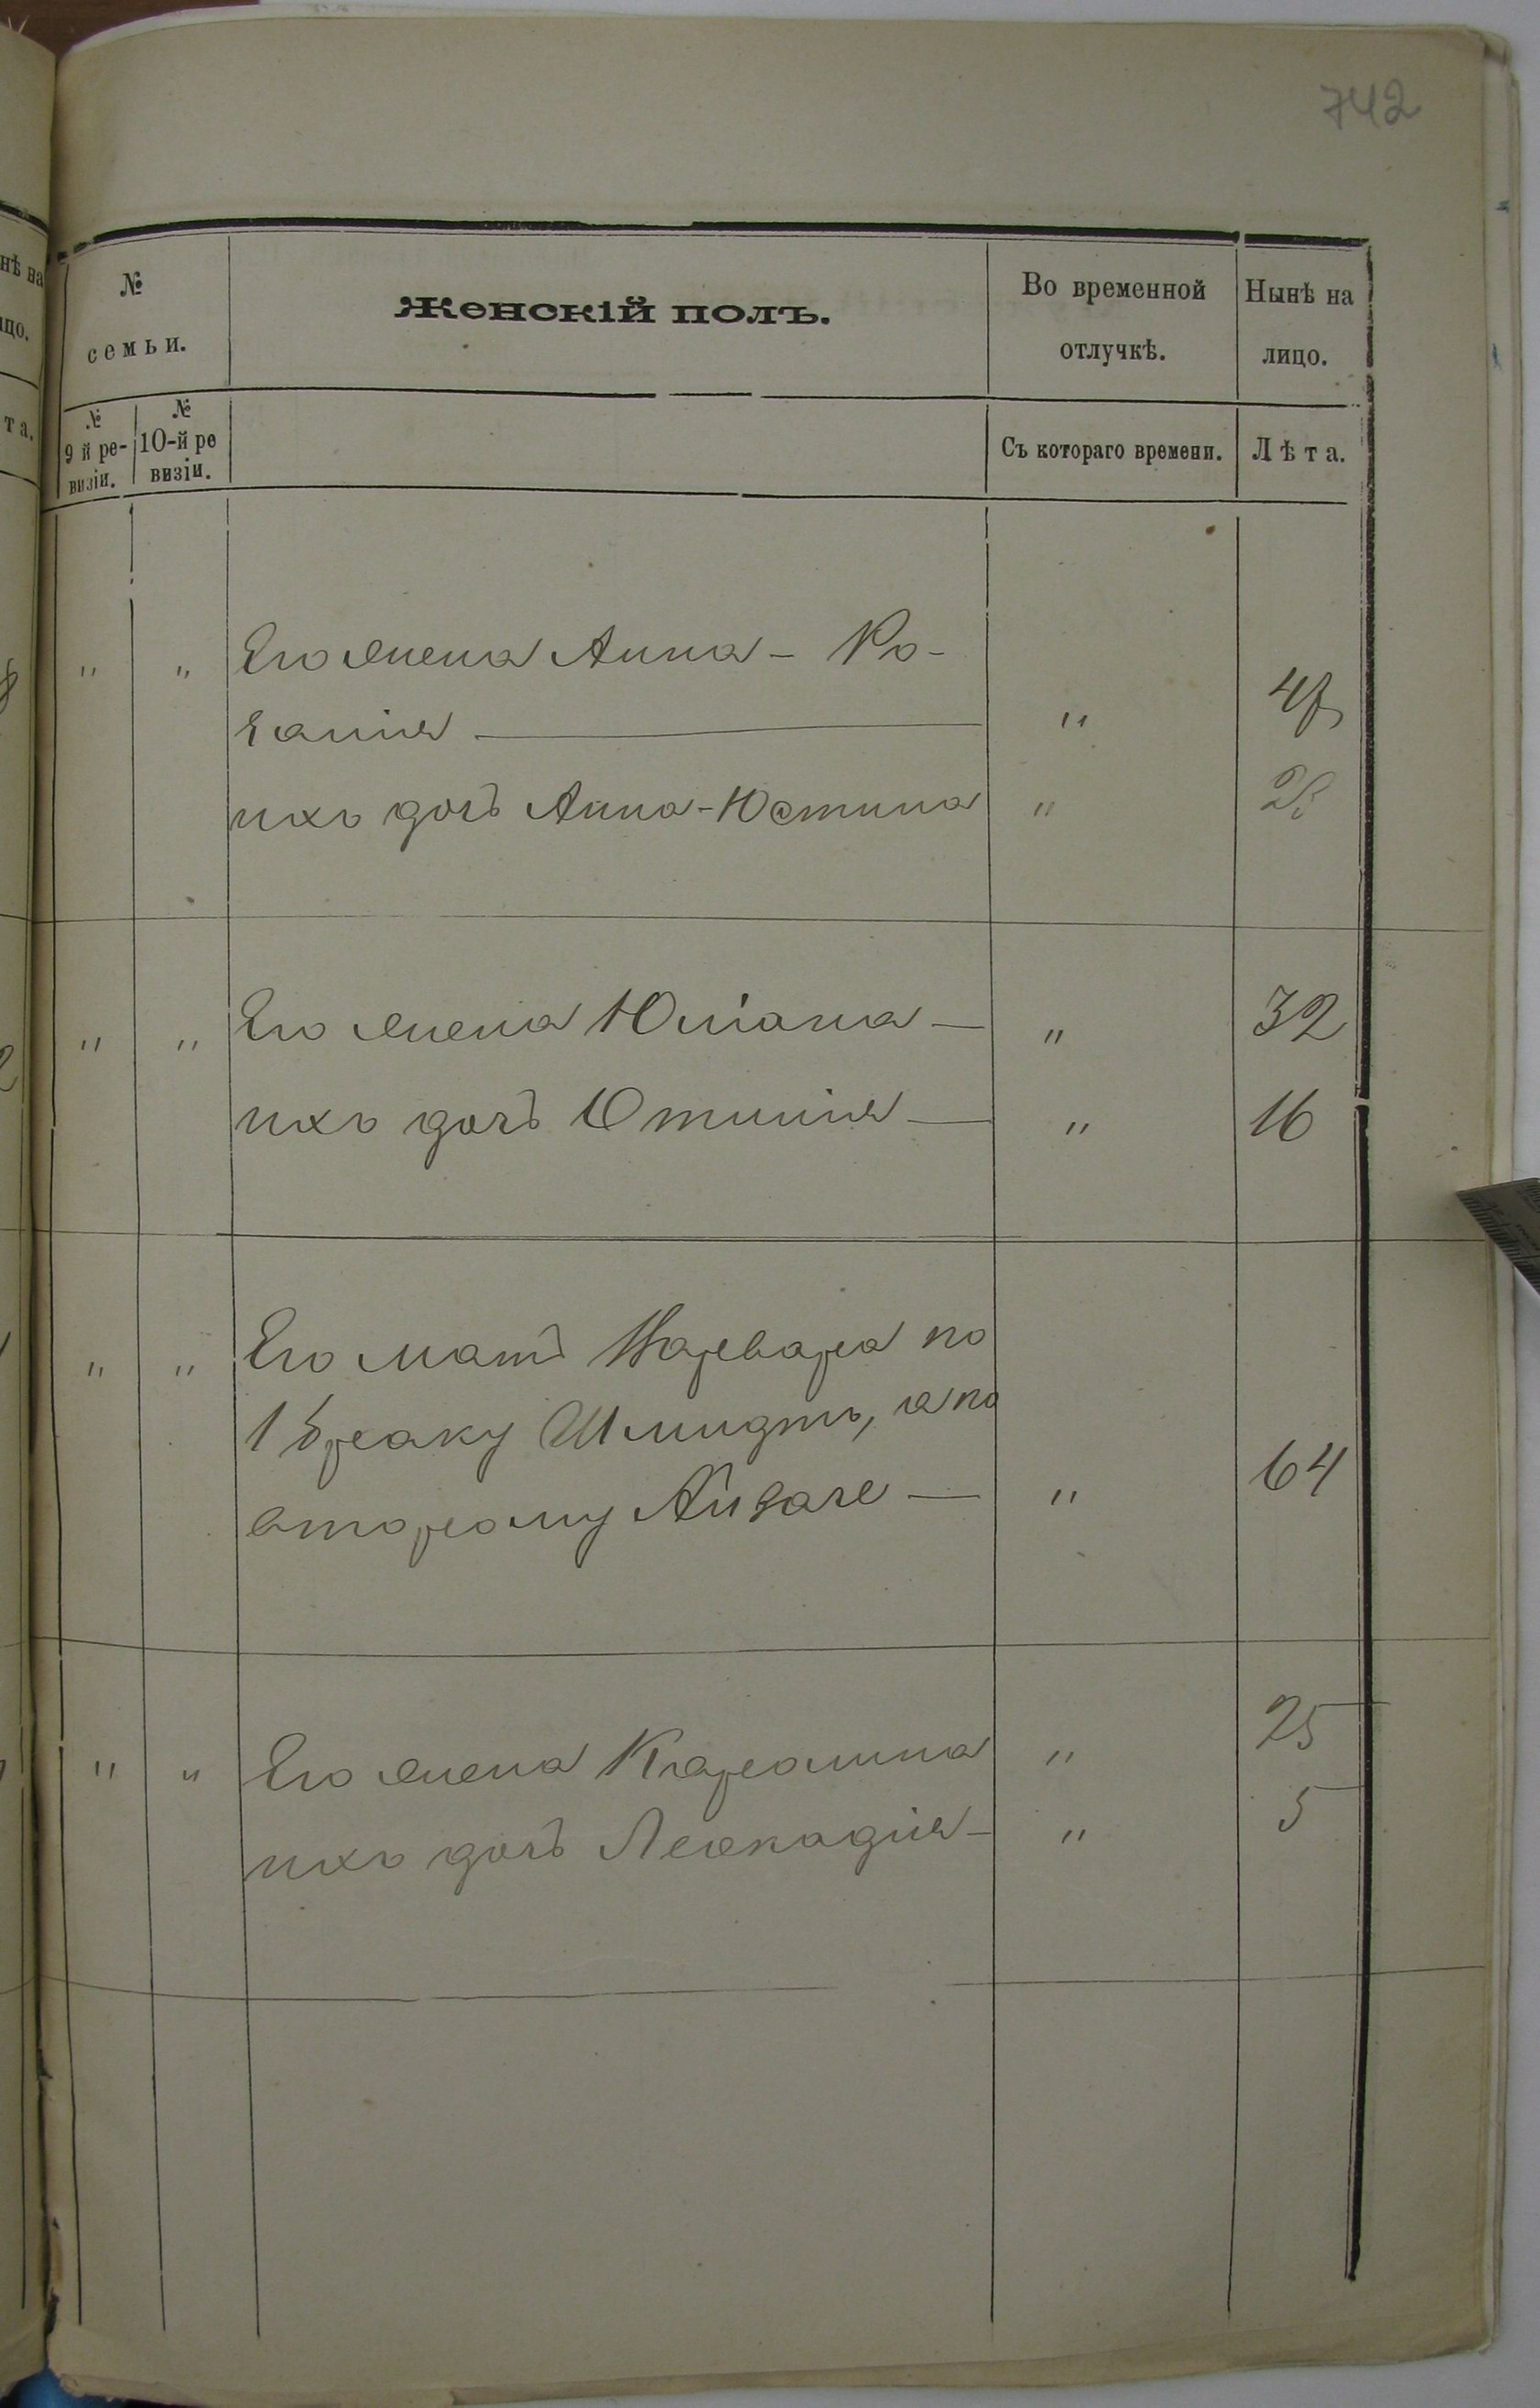 742
№ семьи.
Женскій полъ.
Во временной отлучкѣ.
Нынѣ на лицо.
№ 9 й ревизіи.
№ 10-й ре визіи.
Съ котораго времени.
Лѣта.
" " Его жена Анна - Ро-
залія — "
ихъ дочь Анна-Юстина "
" " Его жена Юліана — " 32
ихъ дочь Юстинія — " 16
" " Его мать Варвара по
1 браку Шмидтъ, а по
второму — " 64
" " Его жена Каролина " 25
ихъ дочь Леокадія - " 5